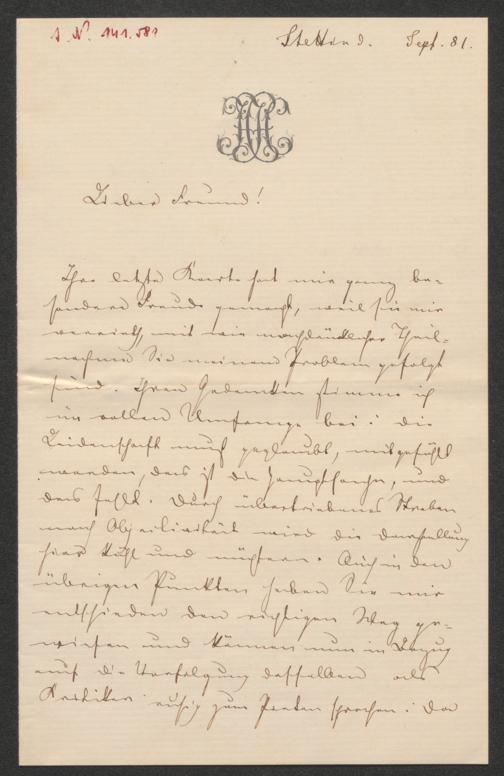 I. N. 141.581
Stettin d. Sept. 81.
Lieber Freund!
Ihre letzte Karte hat mir ganz be-
sondere Freude gemacht, weil sie mir
verrieth, mit wie nachdenklicher Theil-
nahme Sie meinem Problem gefolgt
sind. Ihren Gedanken stimme ich
im vollen Umfange bei: die
Leidenschaft muß geglaubt, mitgefühlt
werden, das ist die Hauptsache, und
das fehlt. Durch übertriebenes Streben
nach Objectivität wird die Darstellung
hier kühl und nüchtern. Auch in den
übrigen Punkten haben Sie mir
entschieden den richtigen Weg ge-
wiesen und können nun in Bezug
auf die Verfolgung desselben als
Kritiker ruhig zum Poeten sprechen: Da